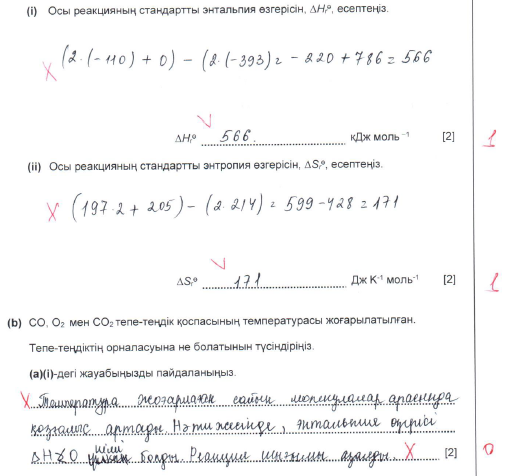 (i) Осы реакцияның стандартты энтальпия өзгерісін, ΔHᵣº, есептеңіз.
(2·(-110) + 0) - (2·(-393) = -220 + 786 = 566
ΔHᵣº 566. кДж моль ⁻¹ [2] 1
(ii) Осы реакцияның стандартты энтропия өзгерісін, ΔSᵣº, есептеңіз.
(197·2 + 205) - (2·214) = 599 - 428 = 171
ΔSᵣº 171 Дж К⁻¹ моль⁻¹ [2] 1
(b) CO, O₂ мен CO₂ тепе-теңдік қоспасының температурасы жоғарылатылған.
Тепе-теңдіктің орналасуына не болатынын түсіндіріңіз.
(a)(i)-дегі жауабыңызды пайдаланыңыз.
Температура жоғарлаған сайын молекулалар арасында
қозғалыс артады. Нәтижесінде, энтальпия өзгерісі
ΔH 0 болды. Реакция азаяды. [2] 0